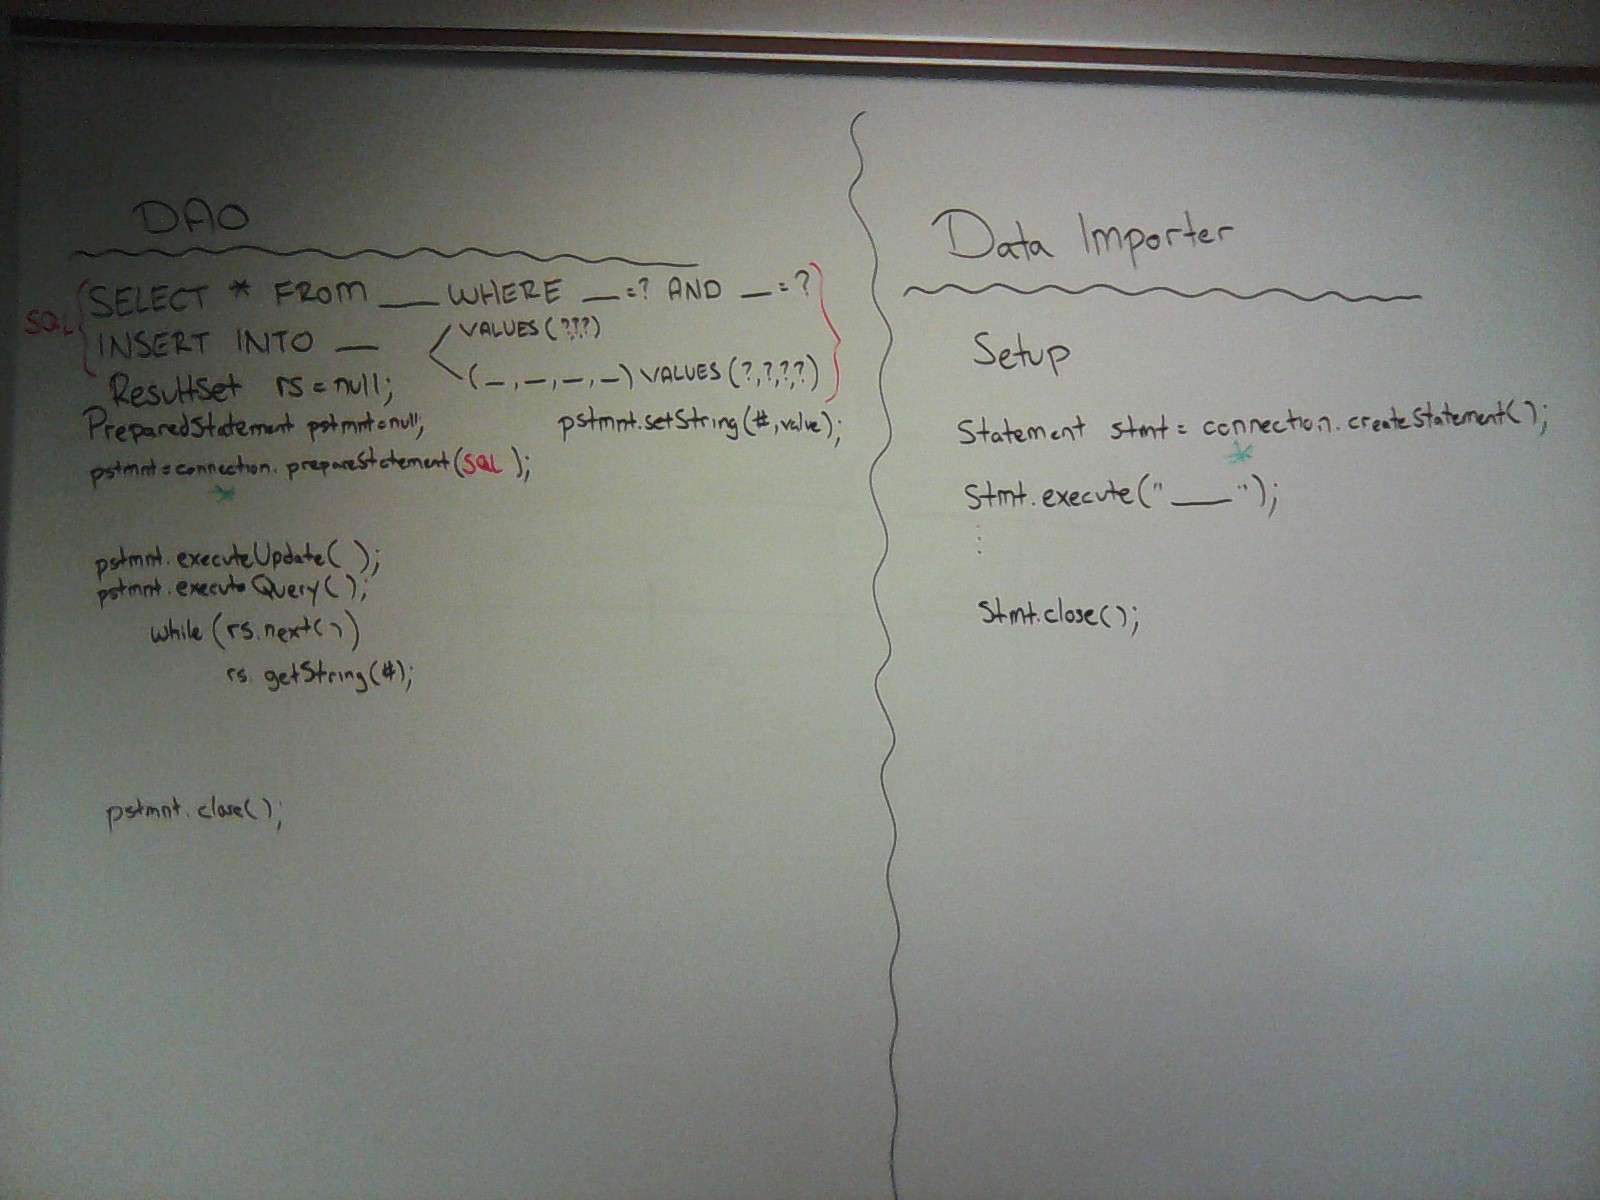 DAO
SQL
SELECT * FROM ___ WHERE __=? AND __=?
INSERT INTO __
VALUES(???)
(_,_,_,_) VALUES(?,?,?,?)
ResultSet rs=null;
PreparedStatement pstmnt=null;
pstmnt.setString(#,value);
pstmnt=connection.prepareStatement(SQL);
*
pstmnt.executeUpdate( );
pstmnt.executeQuery( );
while (rs.next()
rs.getString(#);
pstmnt.close();
Data Importer
Setup
Statement stmt = connection.createStatement();
*
Stmt.execute("___");
:
Stmt.close();